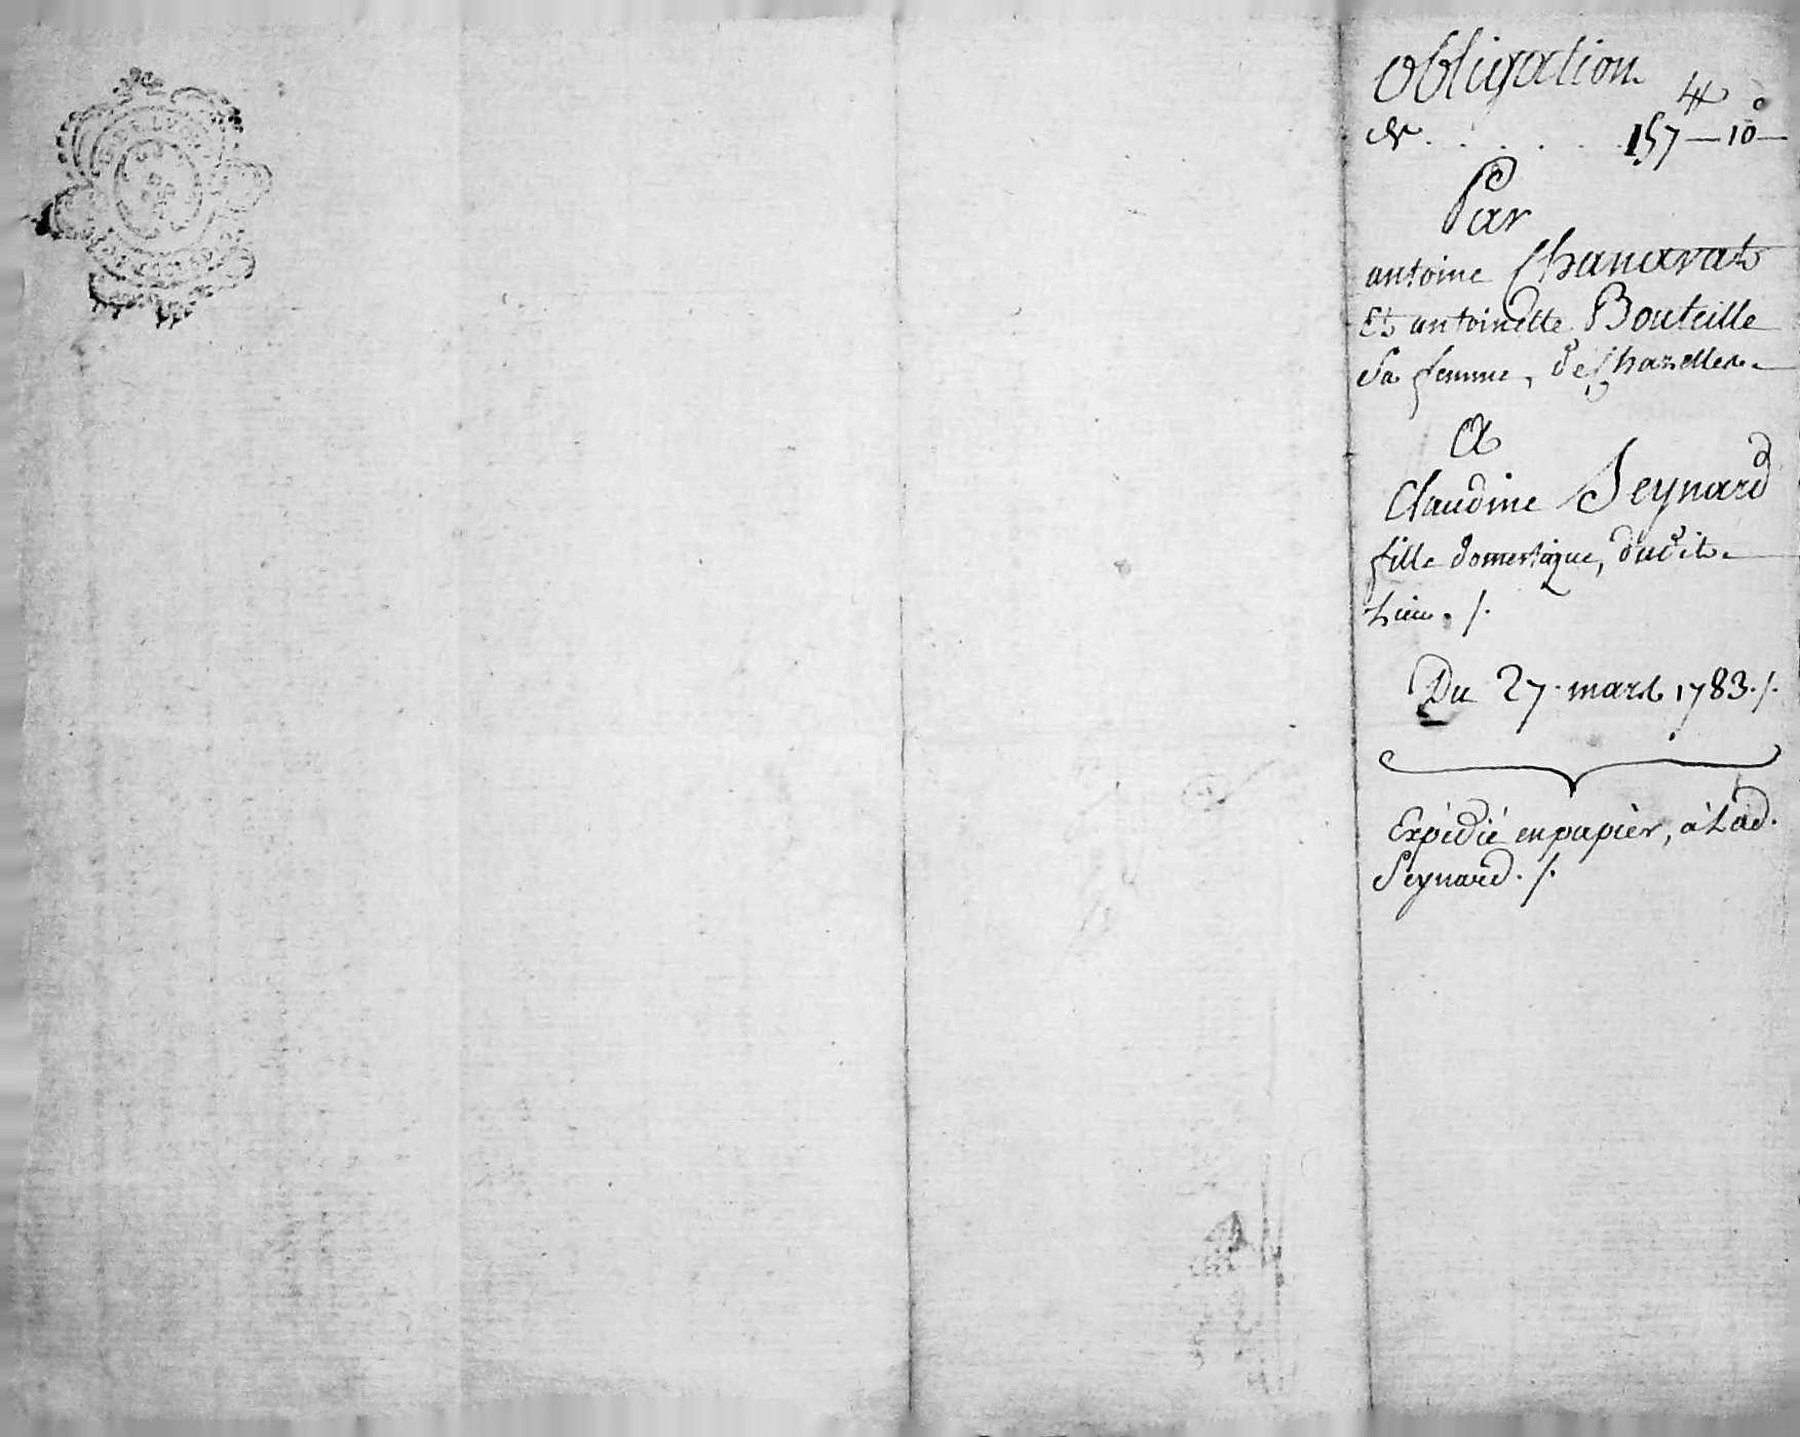 Obligation
de . . . . . . 157 ₶ — 10 s —
Par
antoine Chanavat
Et antoinette Bouteille
Sa femme, de Chazelles.
A
Claudine Seynard
fille domestique, dudit
Lieu. /.
Du 27 mars 1783. /.
Expédié en papier, à Lad.
Seynard. /.